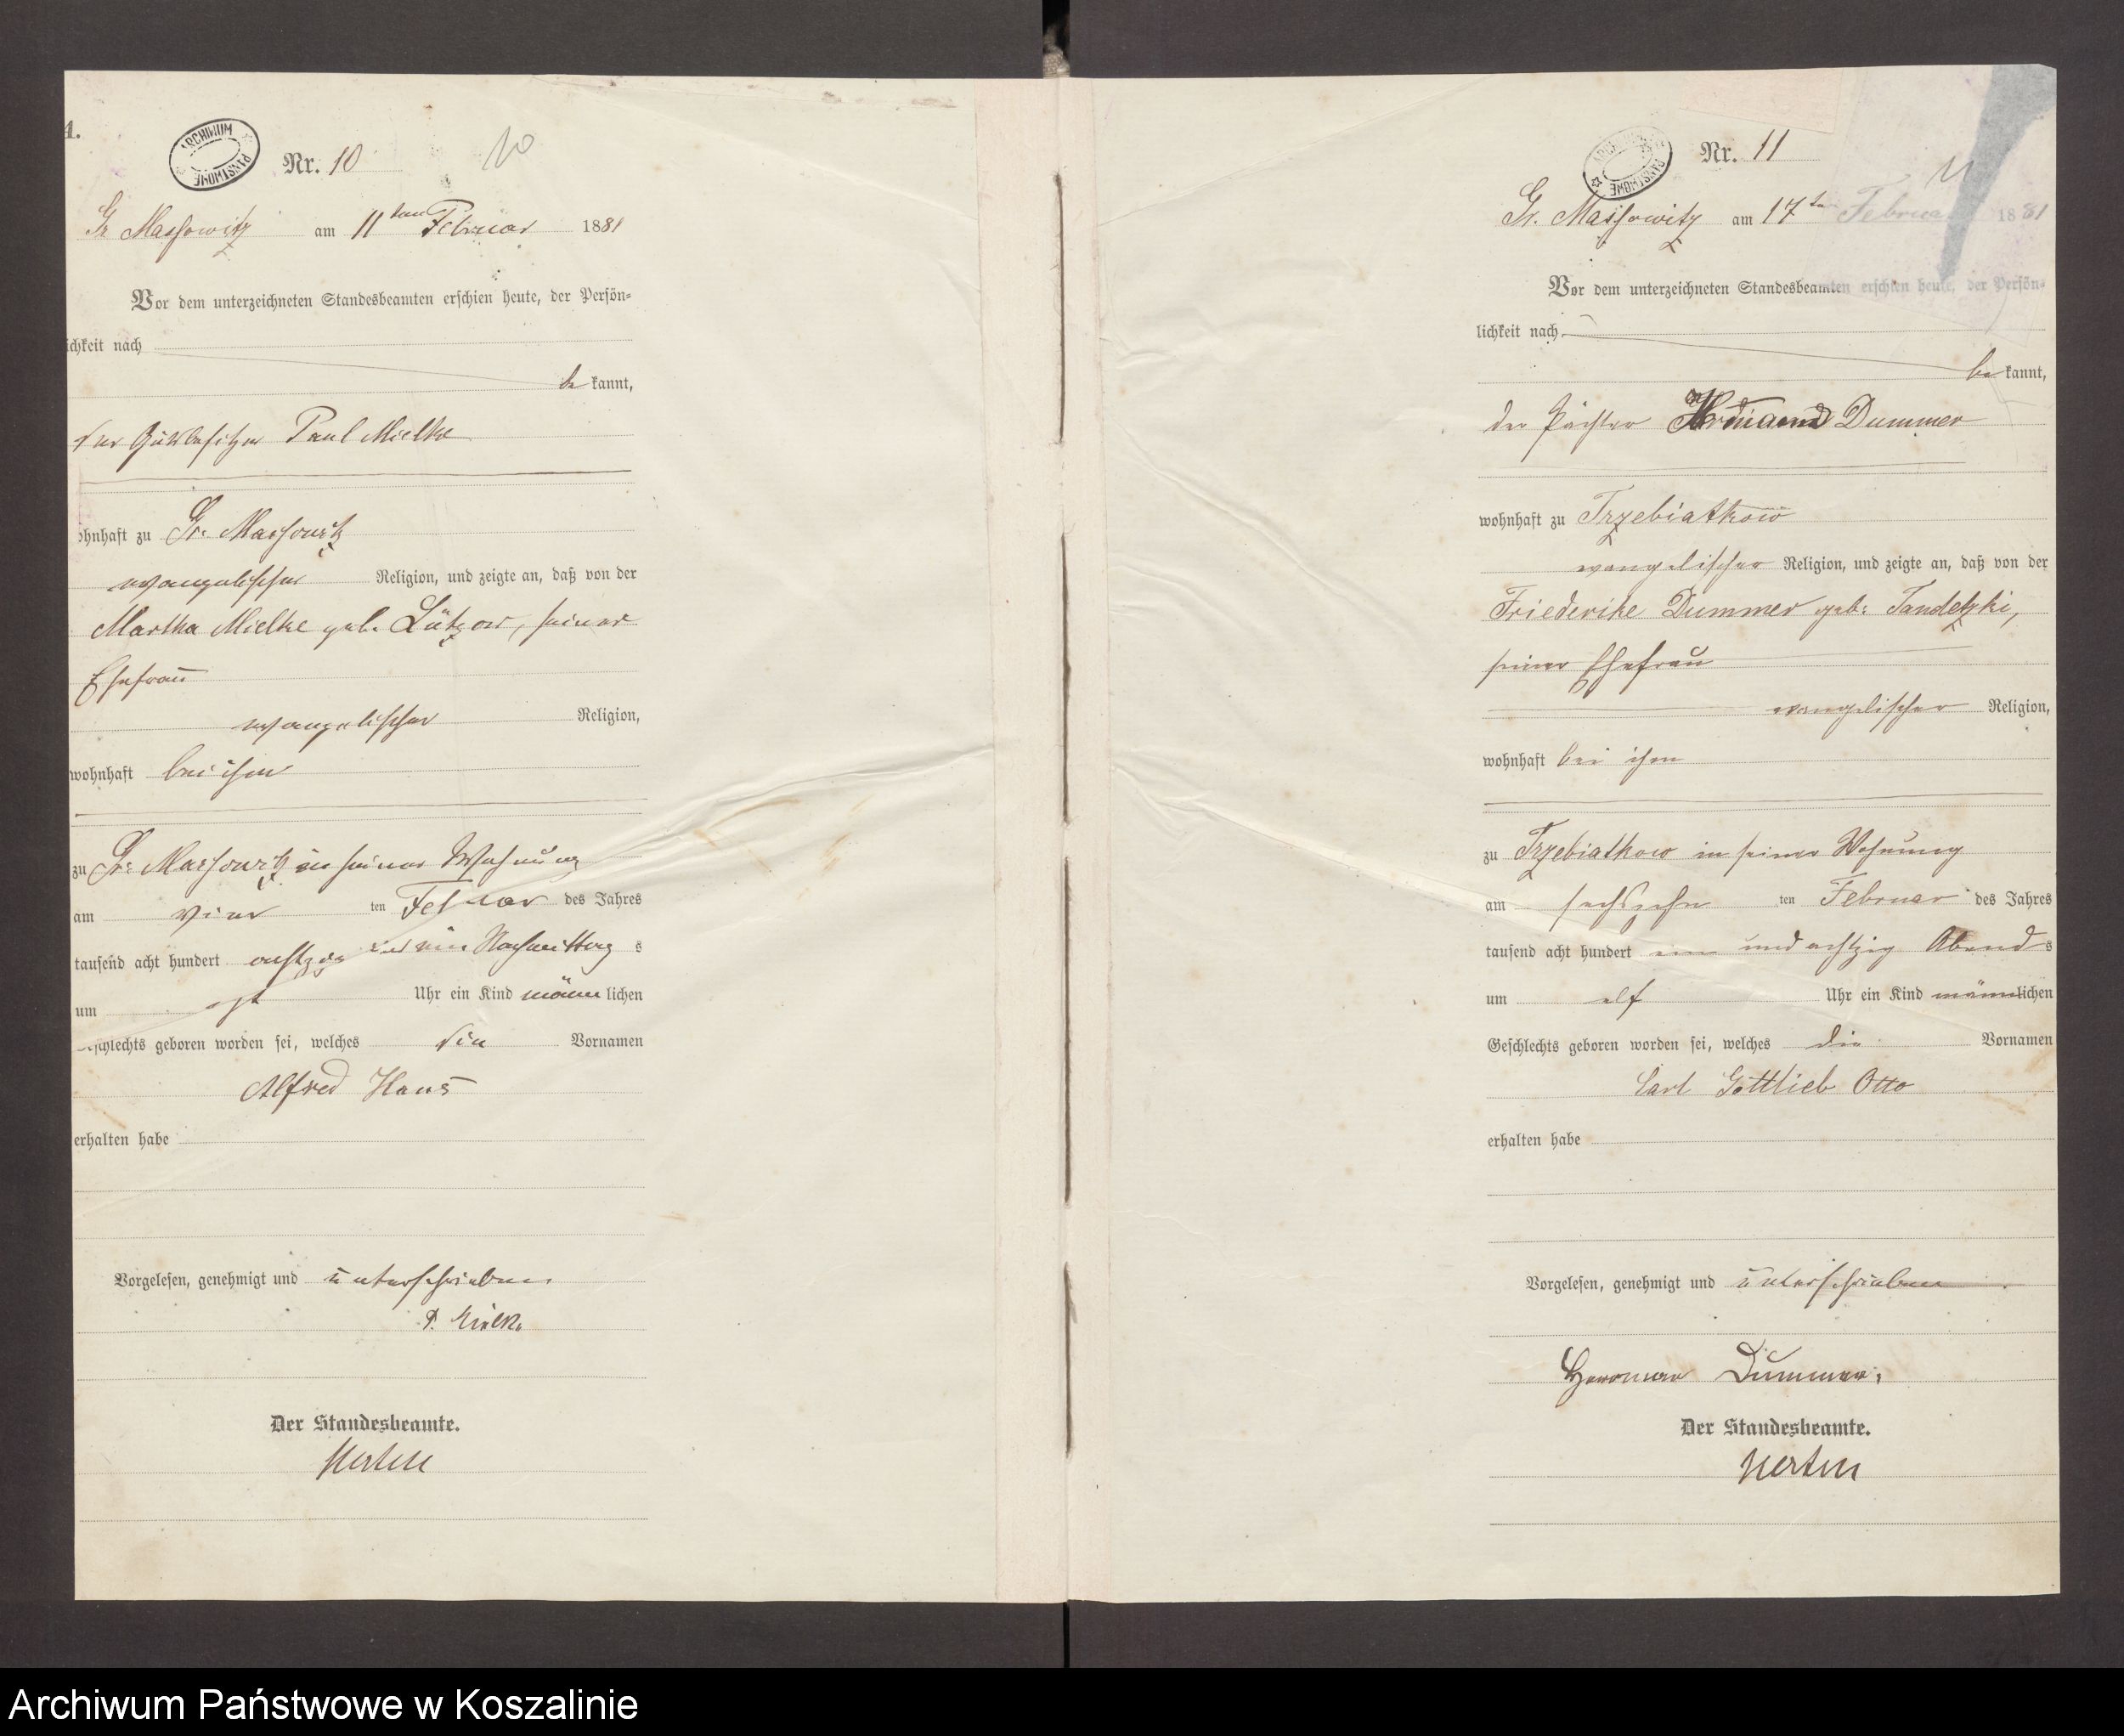 A.
ARCHIWUM PAŃSTWOWE
Nr. 10
10
Gr Massowitz am 11ten Februar 1881
Vor dem unterzeichneten Standesbeamten erschien heute, der Persön-
lichkeit nach
be kannt,
der Gutsbesitzer Paul Mielke
wohnhaft zu Gr. Massowitz
evangelischer Religion, und zeigte an, daß von der
Martha Mielke geb. Lützow, seiner
Ehefrau
evangelischer Religion,
wohnhaft bei ihm
zu Gr. Massowitz in seiner Wohnung
am vier ten Februar des Jahres
tausend acht hundert achtzig und ein Nachmittag s
um Uhr ein Kind männ lichen
Geschlechts geboren worden sei, welches die Vornamen
Alfred Hans
erhalten habe
Vorgelesen, genehmigt und unterschrieben
P. Mielke
Der Standesbeamte.
Merten
ARCHIWUM PAŃSTWOWE
Nr. 11
11
Gr. Massowitz am 17ten Februar 1881
Vor dem unterzeichneten Standesbeamten erschien heute, der Persön-
lichkeit nach
be kannt,
der Pächter Dummer
wohnhaft zu Trzebiatkow
evangelischer Religion, und zeigte an, daß von der
Friederike Dummer geb. Tandetzki,
seiner Ehefrau
evangelischer Religion,
wohnhaft bei ihm
zu Trzebiatkow in seiner Wohnung
am sechszehn ten Februar des Jahres
tausend acht hundert ein und achtzig Abend s
um elf Uhr ein Kind männlichen
Geschlechts geboren worden sei, welches die Vornamen
Carl Gottlieb Otto
erhalten habe
Vorgelesen, genehmigt und unterschrieben
Herrman Dummer.
Der Standesbeamte.
Merten
Archiwum Państwowe w Koszalinie